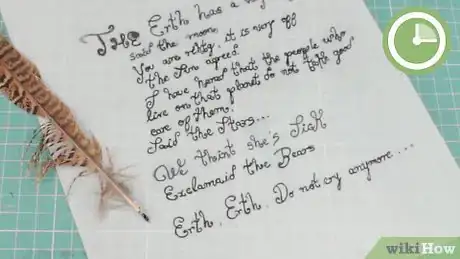 THE Erth has a
said the moon.
You are rihtg, it is very off
the Sun agreed.
I have heared that the people who
live on that planet do not take good
care of them.
Said the Stars...
We thaint she's Sick
Exclamaid the Bears
Erth, Erth, Do not cry anymore....
wikiHow